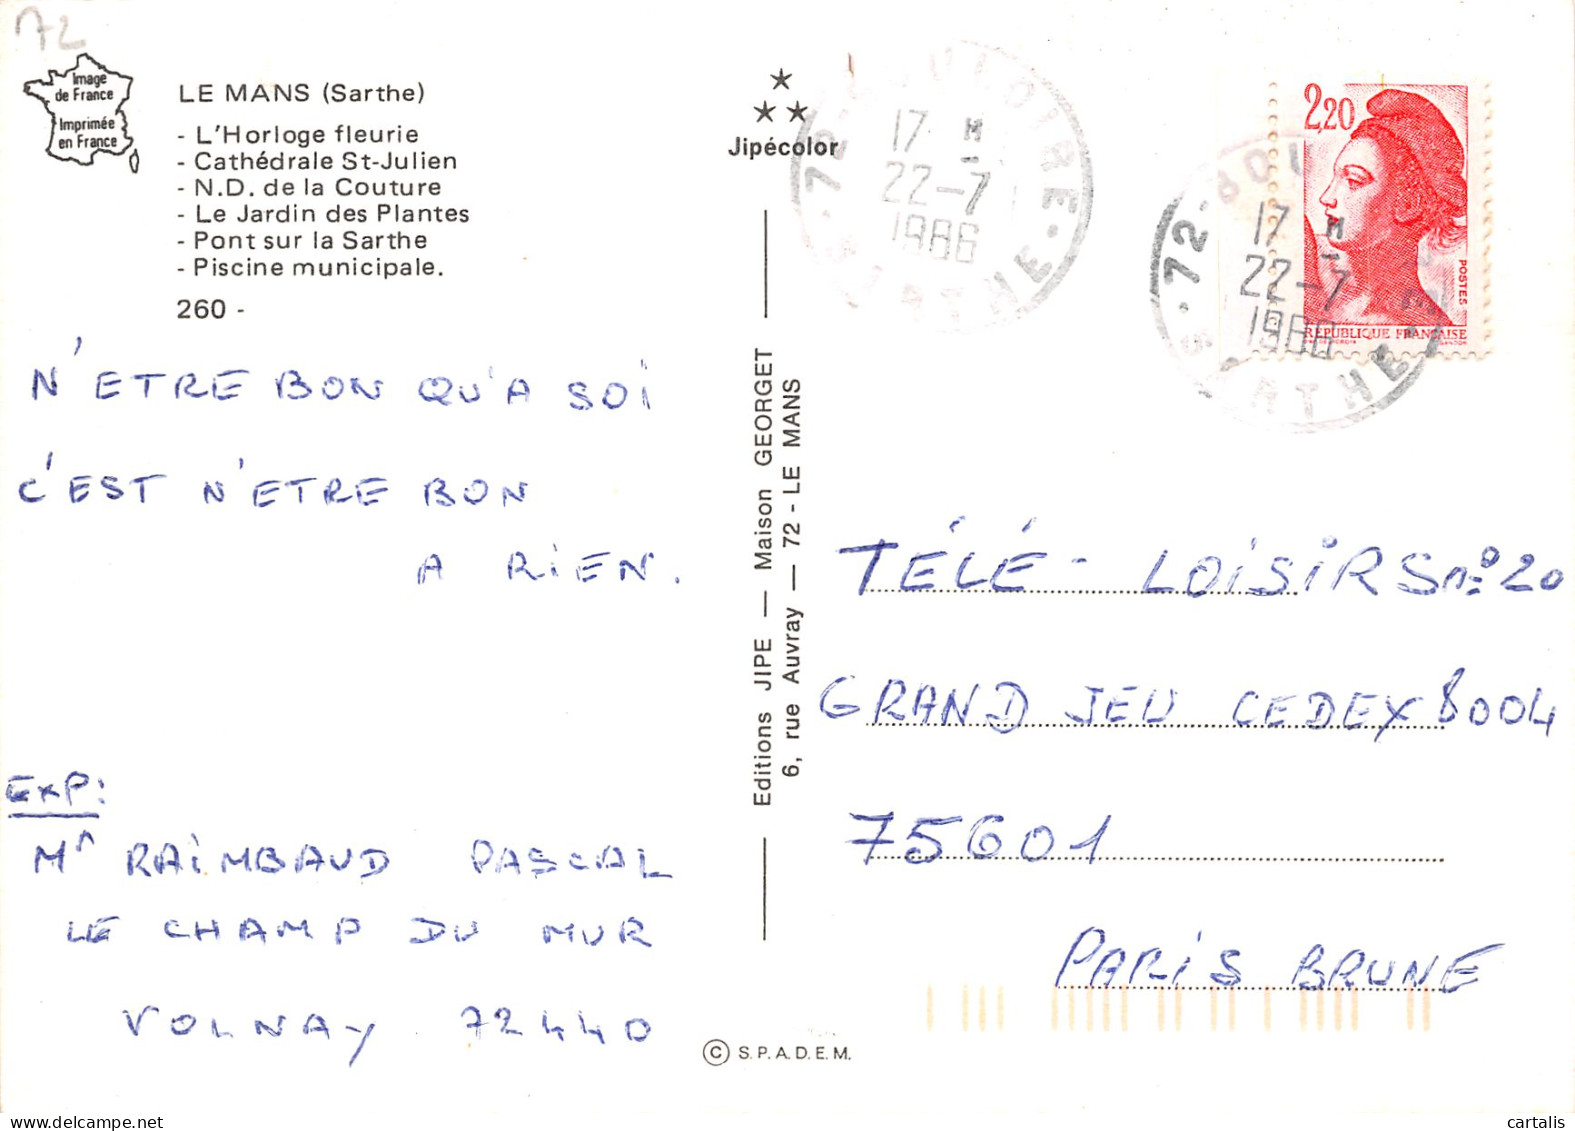 72
Image
de France
Imprimée
en France
LE MANS (Sarthe)
- L'Horloge fleurie
- Cathédrale St-Julien
- N.D. de la Couture
- Le Jardin des Plantes
- Pont sur la Sarthe
- Piscine municipale.
260 -
N'ETRE BON QU'A SOI
C'EST N'ETRE BON
A RIEN.
EXP:
Mr RAIMBAUD PASCAL
LE CHAMP DU MUR
VOLNAY 72440
Jipécolor
Editions JIPE — Maison GEORGET
6, rue Auvray — 72 - LE MANS
© S.P.A.D.E.M.
72 - BOULOIRE - SARTHE
17 H
22-7
1986
2,20
POSTES
REPUBLIQUE FRANÇAISE
72 - BOU
17 H
22-7
1986
SARTHE
TÉLÉ - LOISIRS n°20
GRAND JEU CEDEX 8004
75601
PARIS BRUNE
www.delcampe.net
cartalis